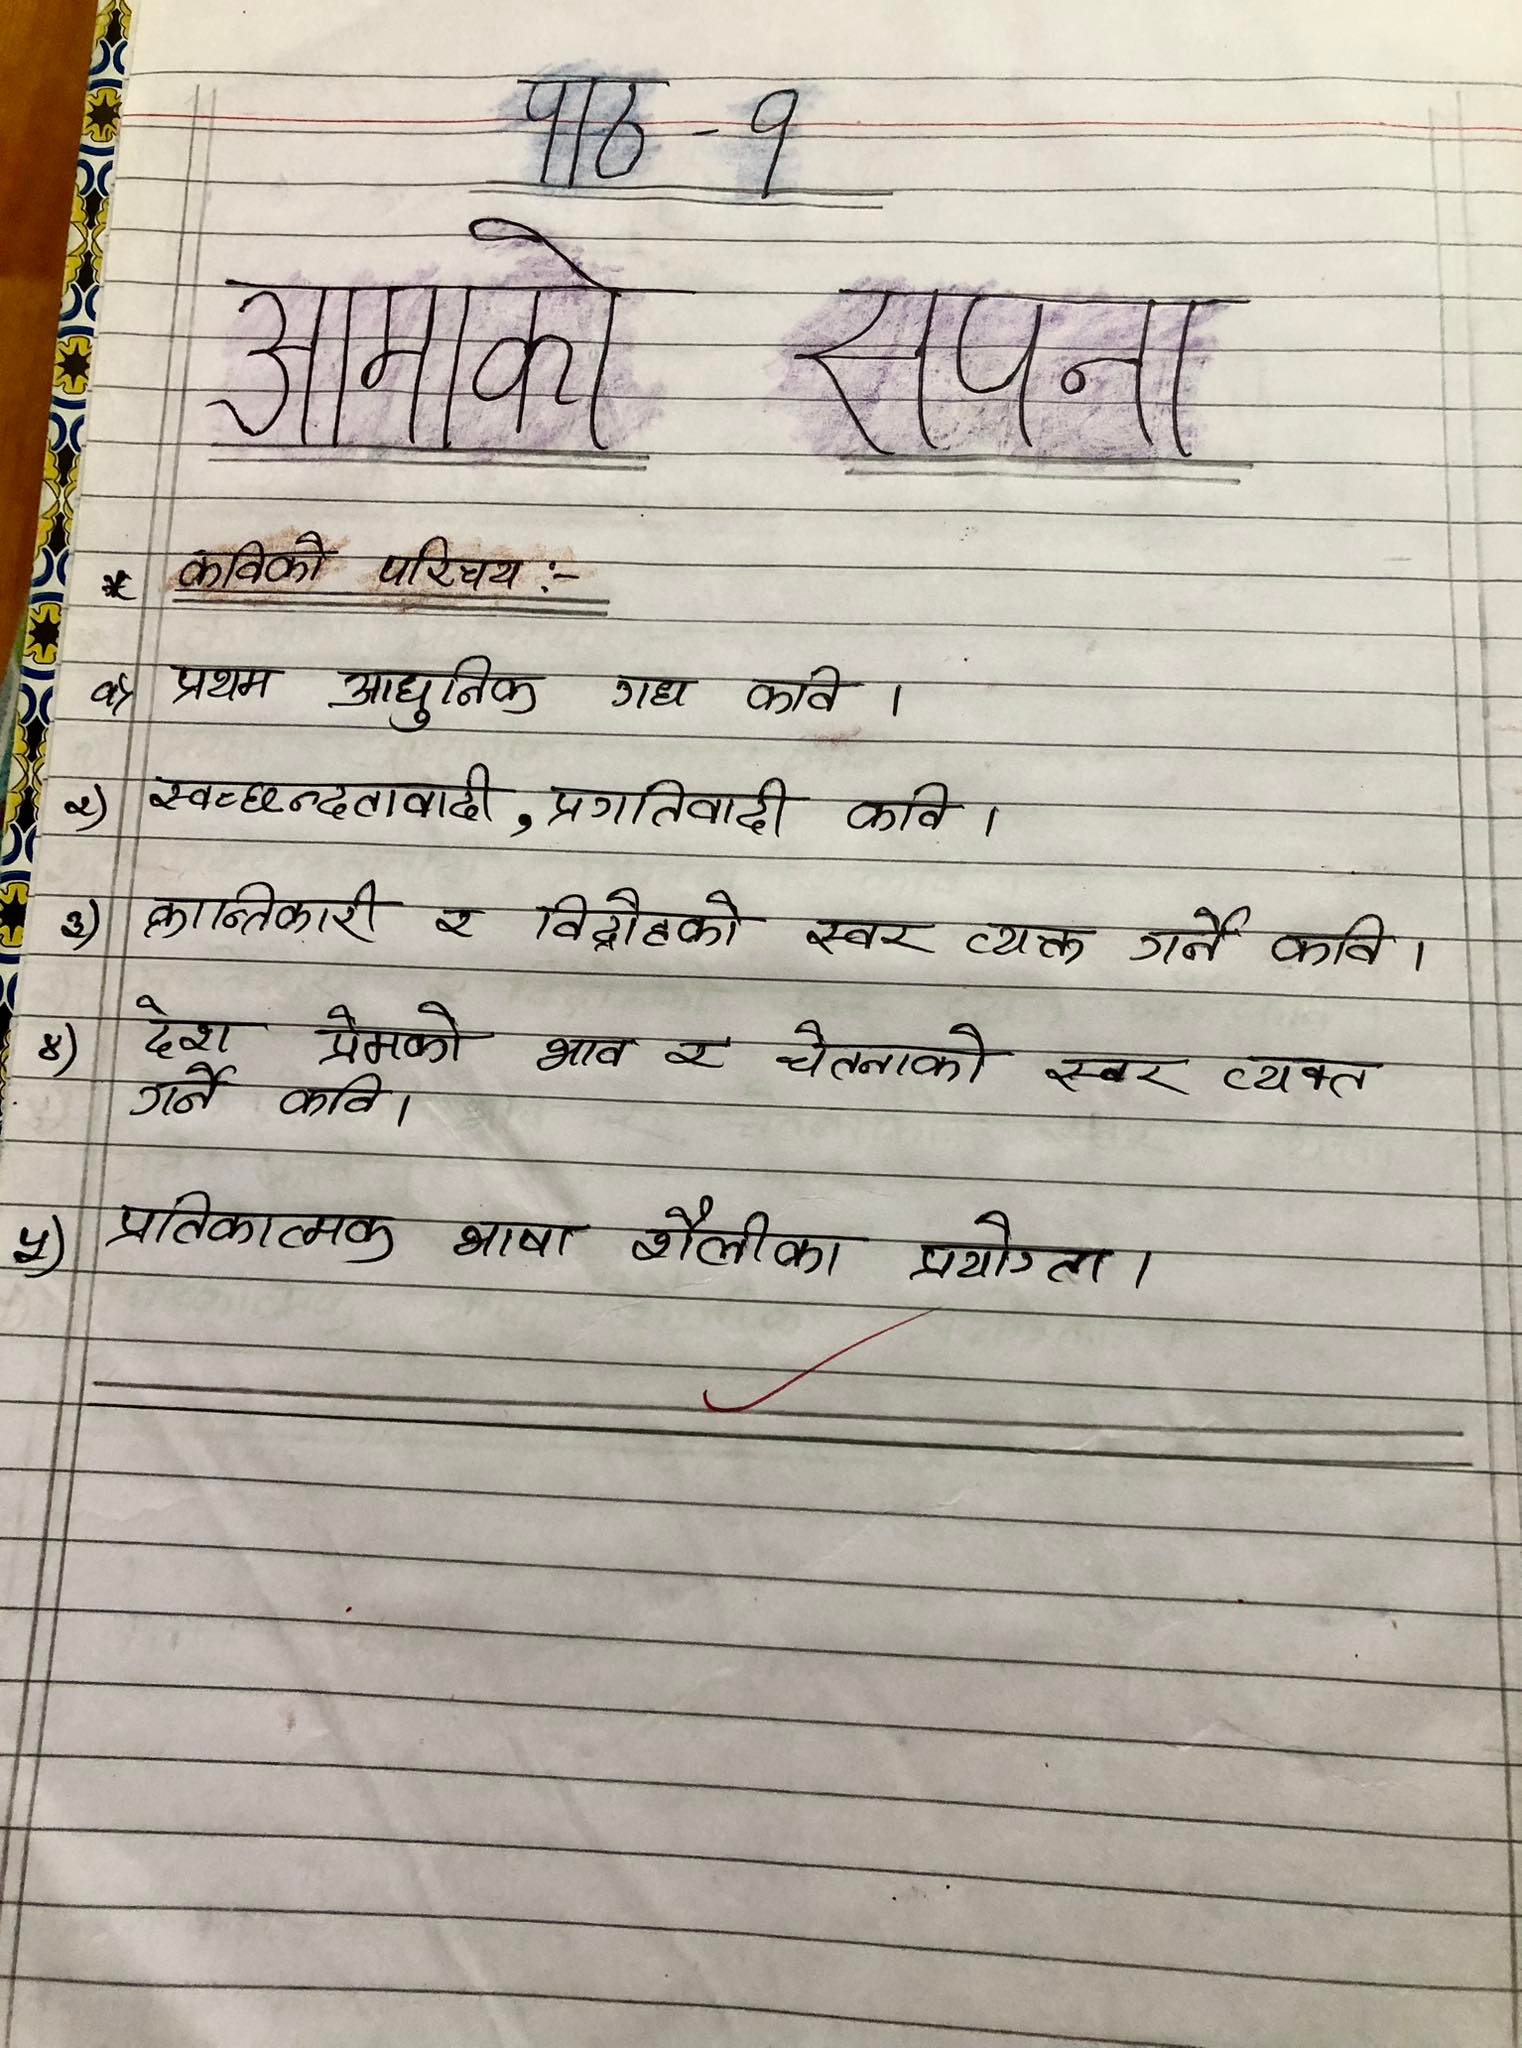 पाठ - १
आमाको सपना
* कविको परिचय :-
क) प्रथम आधुनिक गद्य कवि ।
२) स्वच्छन्दतावादी, प्रगतिवादी कवि ।
३) क्रान्तिकारी र विद्रोहको स्वर व्यक्त गर्ने कवि ।
४) देश प्रेमको भाव र चेतनाको स्वर व्यक्त
गर्ने कवि ।
५) प्रतिकात्मक भाषा शैलीका प्रयोग्ता ।